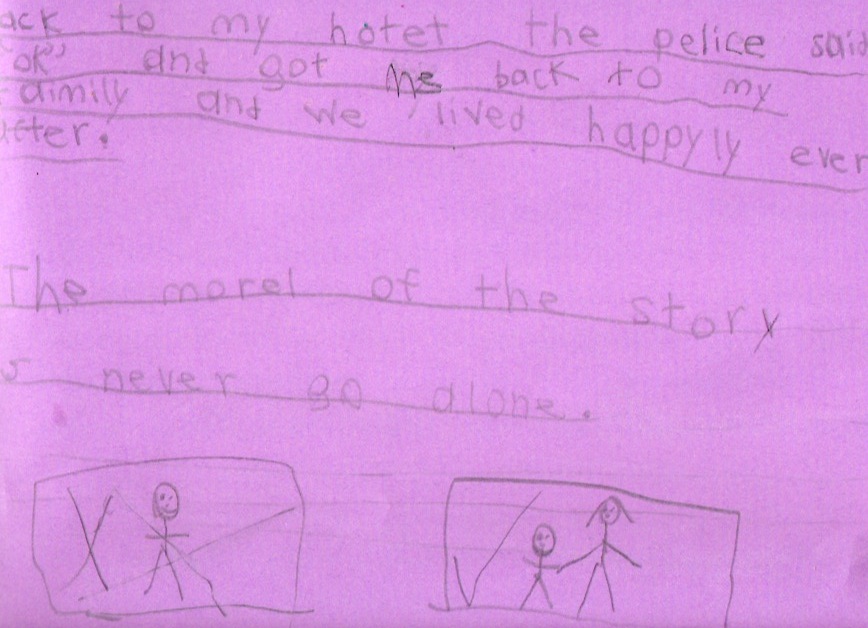 ack to my hotet the pelice said
"ok" and got me back to my
faimily and we lived happyly ever
after.
The morel of the story
is never go alone.